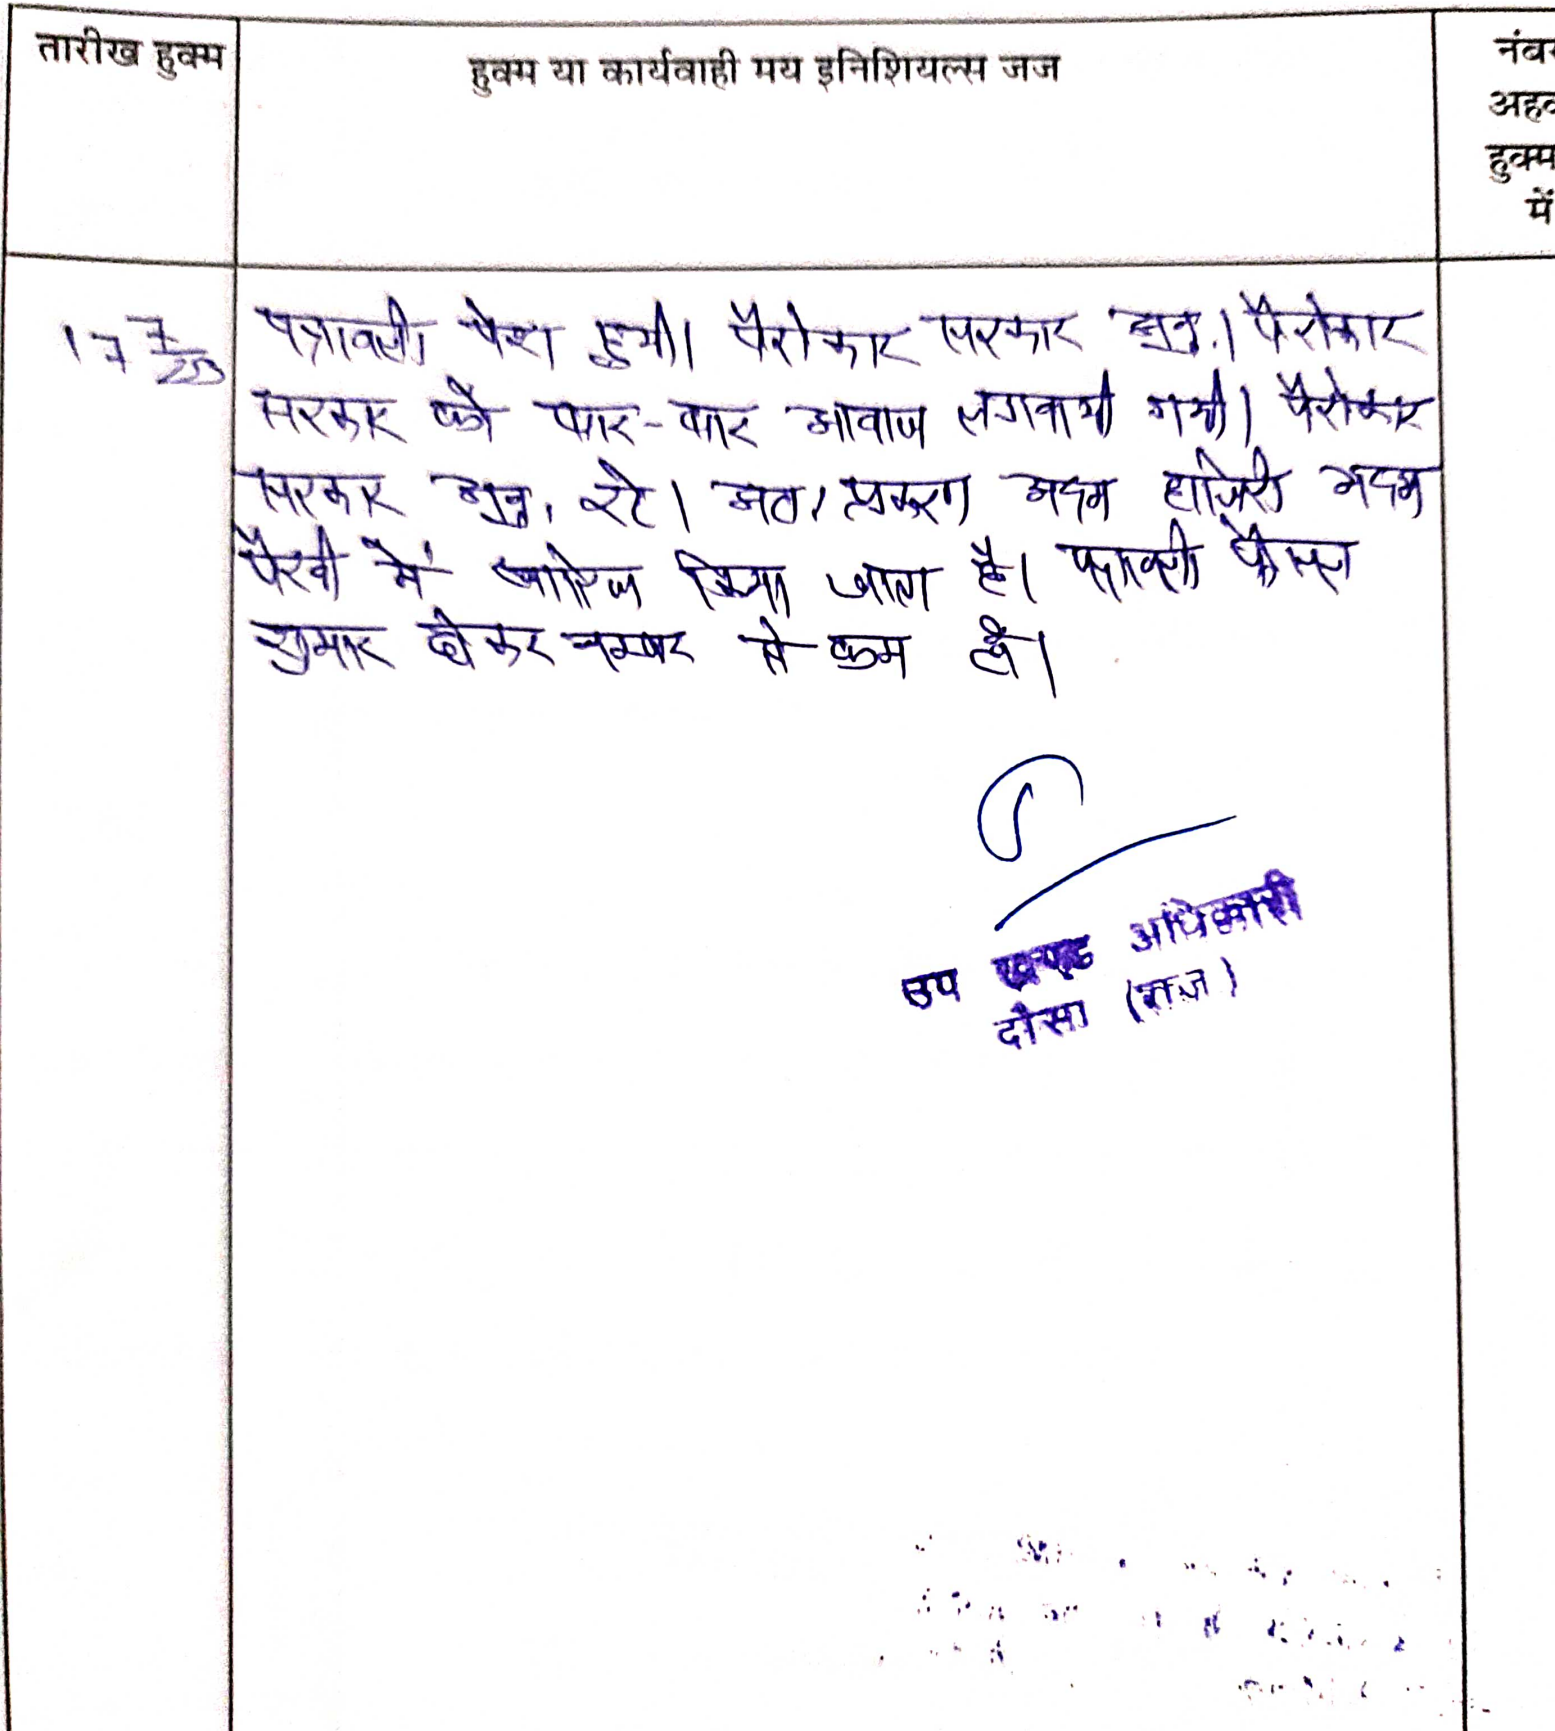 तारीख हुक्म
हुक्म या कार्यवाही मय इनिशियल्स जज
नंब
अह
हुक्म
में
17 7/23
पत्रावली पेश हुयी। पैरोकार सरकार अनु.। पैरोकार
सरकार को बार-बार आवाज लगवायी गयी। पैरोकार
सरकार अनु. रहे। अतः प्रकरण अदम हाजिरी अदम
पैरवी में खारिज किया जाता है। पत्रावली फैसल
शुमार होकर नम्बर से कम हो।
उप खण्ड अधिकारी
दौसा (राज)